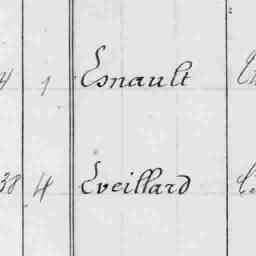 4 1 Esnault
38 4 Eveillard